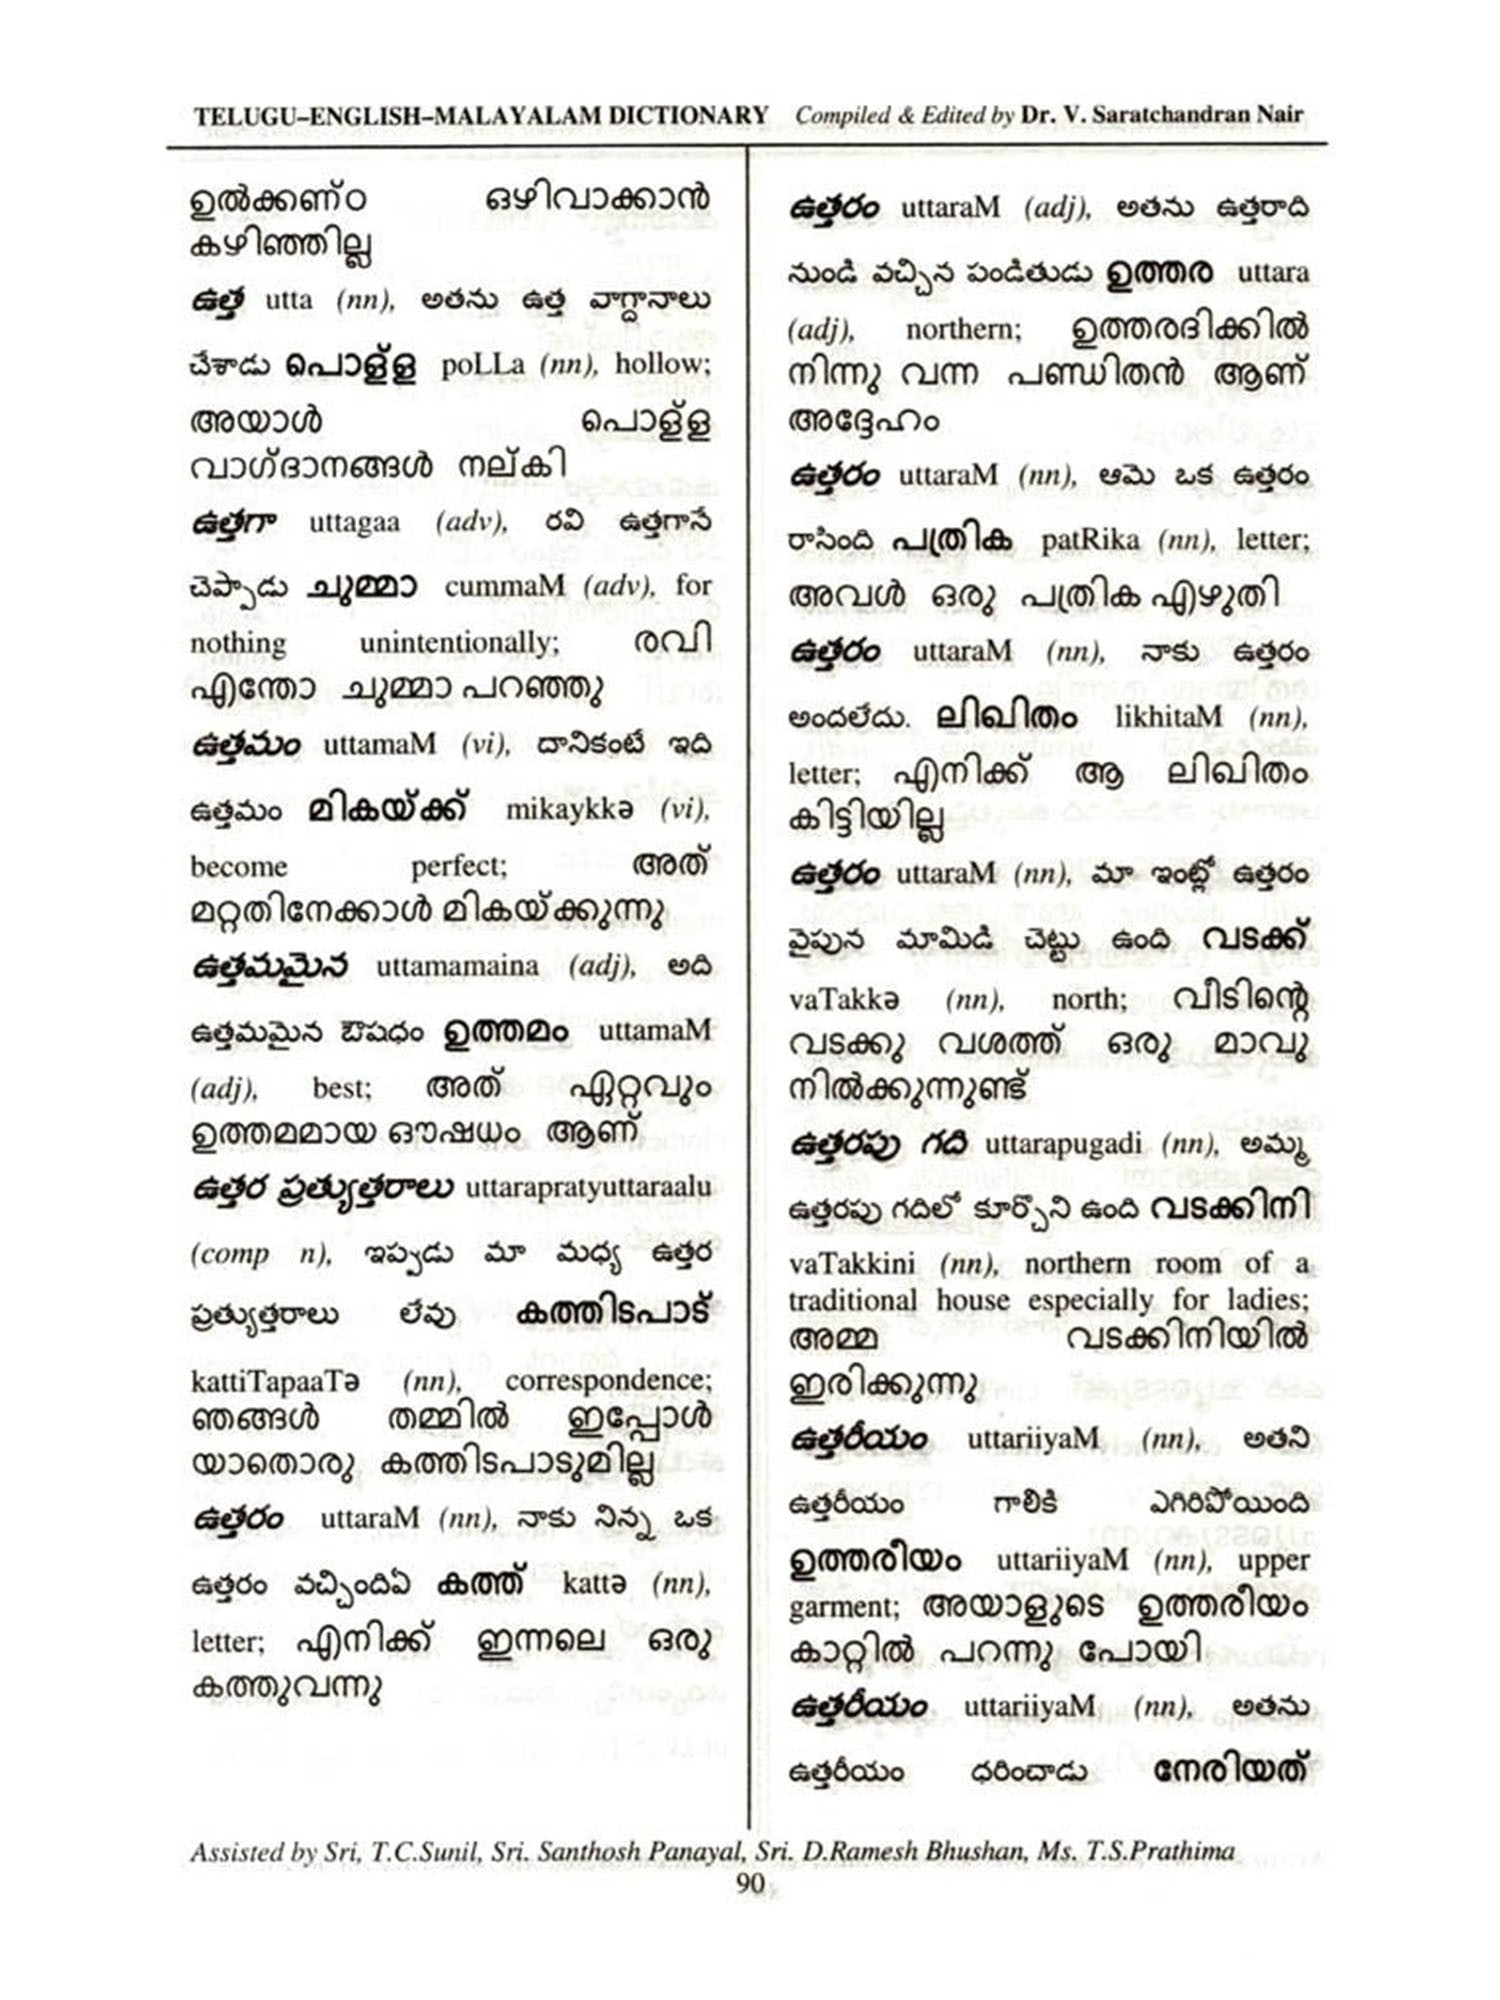 TELUGU–ENGLISH–MALAYALAM DICTIONARY Compiled & Edited by Dr. V. Saratchandran Nair
ഉൽക്കണ്ഠ ഒഴിവാക്കാൻ
കഴിഞ്ഞില്ല
ఉత్త utta (nn), అతను ఉత్త వాగ్దానాలు
చేశాడు പൊള്ള poLLa (nn), hollow;
അയാൾ പൊള്ള
വാഗ്ദാനങ്ങൾ നല്കി
ఉత్తగా uttagaa (adv), రవి ఉత్తగానే
చెప్పాడు ചുമ്മാ cummaM (adv), for
nothing unintentionally; രവി
എന്തോ ചുമ്മാ പറഞ്ഞു
ఉత్తమం uttamaM (vi), దానికంటే ఇది
ఉత్తమం മികയ്ക്ക് mikaykkə (vi),
become perfect; അത്
മറ്റതിനേക്കാൾ മികയ്ക്കുന്നു
ఉత్తమమైన uttamamaina (adj), అది
ఉత్తమమైన ఔషధం ഉത്തമം uttamaM
(adj), best; അത് ഏറ്റവും
ഉത്തമമായ ഔഷധം ആണ്
ఉత్తర ప్రత్యుత్తరాలు uttarapratyuttaraalu
(comp n), ఇప్పడు మా మధ్య ఉత్తర
ప్రత్యుత్తరాలు లేవు കത്തിടപാട്
kattiTapaaTə (nn), correspondence;
ഞങ്ങൾ തമ്മിൽ ഇപ്പോൾ
യാതൊരു കത്തിടപാടുമില്ല
ఉత్తరం uttaraM (nn), నాకు నిన్న ఒక
ఉత్తరం వచ్చిందిఏ കത്ത് kattə (nn),
letter; എനിക്ക് ഇന്നലെ ഒരു
കത്തുവന്നു
ఉత్తరం uttaraM (adj), అతను ఉత్తరాది
నుండి వచ్చిన పండితుడు ഉത്തര uttara
(adj), northern; ഉത്തരദിക്കിൽ
നിന്നു വന്ന പണ്ഡിതൻ ആണ്
അദ്ദേഹം
ఉత్తరం uttaraM (nn), ఆమె ఒక ఉత్తరం
రాసింది പത്രിക patRika (nn), letter;
അവൾ ഒരു പത്രിക എഴുതി
ఉత్తరం uttaraM (nn), నాకు ఉత్తరం
అందలేదు. ലിഖിതം likhitaM (nn),
letter; എനിക്ക് ആ ലിഖിതം
കിട്ടിയില്ല
ఉత్తరం uttaraM (nn), మా ఇంట్లో ఉత్తరం
వైపున మామిడి చెట్టు ఉంది വടക്ക്
vaTakkə (nn), north; വീടിന്റെ
വടക്കു വശത്ത് ഒരു മാവു
നിൽക്കുന്നുണ്ട്
ఉత్తరపు గది uttarapugadi (nn), అమ్మ
ఉత్తరపు గదిలో కూర్చొని ఉంది വടക്കിനി
vaTakkini (nn), northern room of a
traditional house especially for ladies;
അമ്മ വടക്കിനിയിൽ
ഇരിക്കുന്നു
ఉత్తరీయం uttariiyaM (nn), అతని
ఉత్తరీయం గాలికి ఎగిరిపోయింది
ഉത്തരീയം uttariiyaM (nn), upper
garment; അയാളുടെ ഉത്തരീയം
കാറ്റിൽ പറന്നു പോയി
ఉత్తరీయం uttariiyaM (nn), అతను
ఉత్తరీయం ధరించాడు നേരിയത്
Assisted by Sri, T.C.Sunil, Sri. Santhosh Panayal, Sri. D.Ramesh Bhushan, Ms. T.S.Prathima
90